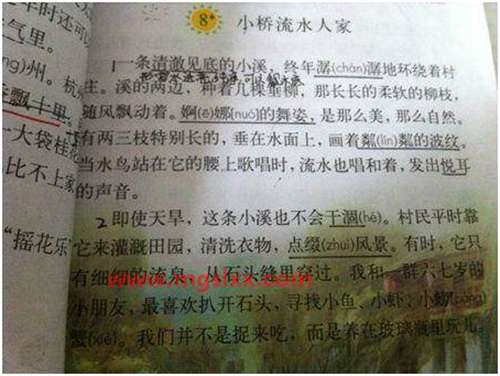 年时还可
气里。
ng)州。杭
飘十里
一大袋桂花
比不上家
“摇花乐”
8*
小桥流水人家
1一条清澈见底的小溪，终年潺(chán)潺地环绕着村
庄。溪的两边，种着几棵垂柳，那长长的柔软的柳枝，
随风飘动着。婀(ē)娜(nuó)的舞姿，是那么美，那么自然。
有两三枝特别长的，垂在水面上，画着粼(lín)粼的波纹。
当水鸟站在它的腰上歌唱时，流水也唱和着，发出悦耳
的声音。
2即使天旱，这条小溪也不会干涸(hé)。村民平时靠
它来灌溉田园，清洗衣物，点缀(zhuì)风景。有时，它只
有细细的流泉，从石头缝里穿过。我和一群六七岁的
小朋友，最喜欢扒开石头，寻找小鱼、小虾、小螃(páng)
蟹(xiè)。我们并不是捉来吃，而是养在玻璃瓶里玩儿。